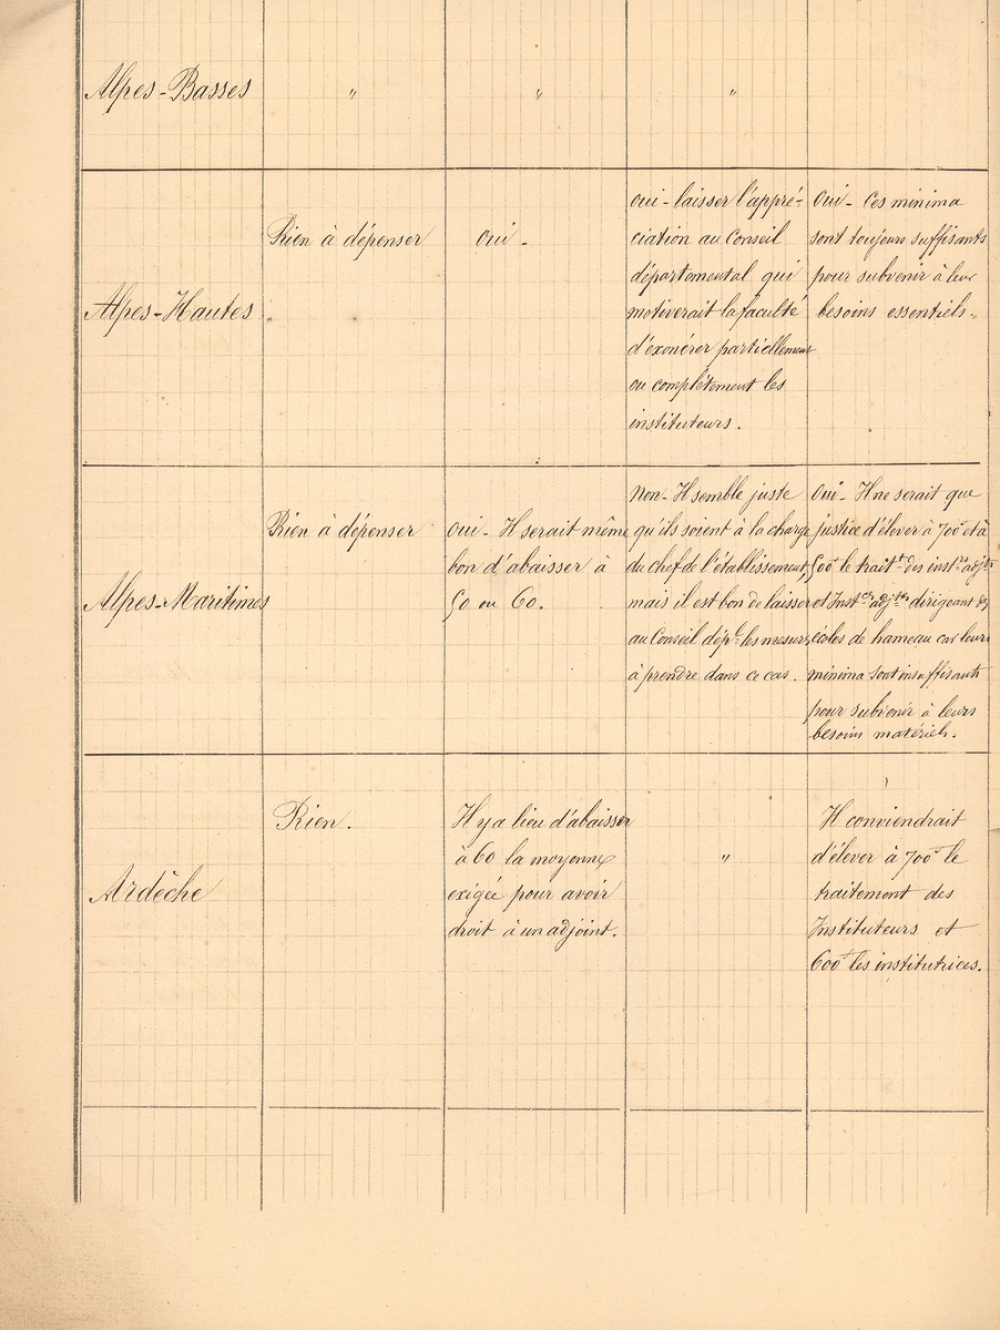 Alpes-Basses
"
"
"
Alpes-Hautes
Rien à dépenser
oui -
oui - laisser l'appré-
ciation au Conseil
départemental qui
motiverait la faculté
d'exonérer partiellement
ou complètement les
instituteurs.
Oui - Ces minima
sont toujours suffisants
pour subvenir à leur
besoins essentiels.
Alpes-Maritimes
Rien à dépenser
oui - Il serait même
bon d'abaisser à
50 ou 60.
Non - Il semble juste
qu'ils soient à la charge
du chef de l'établissement,
mais il est bon de laisser
au Conseil dépl les mesures
à prendre dans ce cas.
Oui - Il ne serait que
justice d'élever à 700f et à
500f le traitt des instrs adjts
et Instces adjtes dirigeant des
écoles de hameau car leurs
minima sont insuffisants
pour subvenir à leurs
besoins matériels.
Ardèche
Rien.
Il y a lieu d'abaisser
à 60 la moyenne
exigée pour avoir
droit à un adjoint.
"
Il conviendrait
d'élever à 700f le
traitement des
Instituteurs et
600f les institutrices.